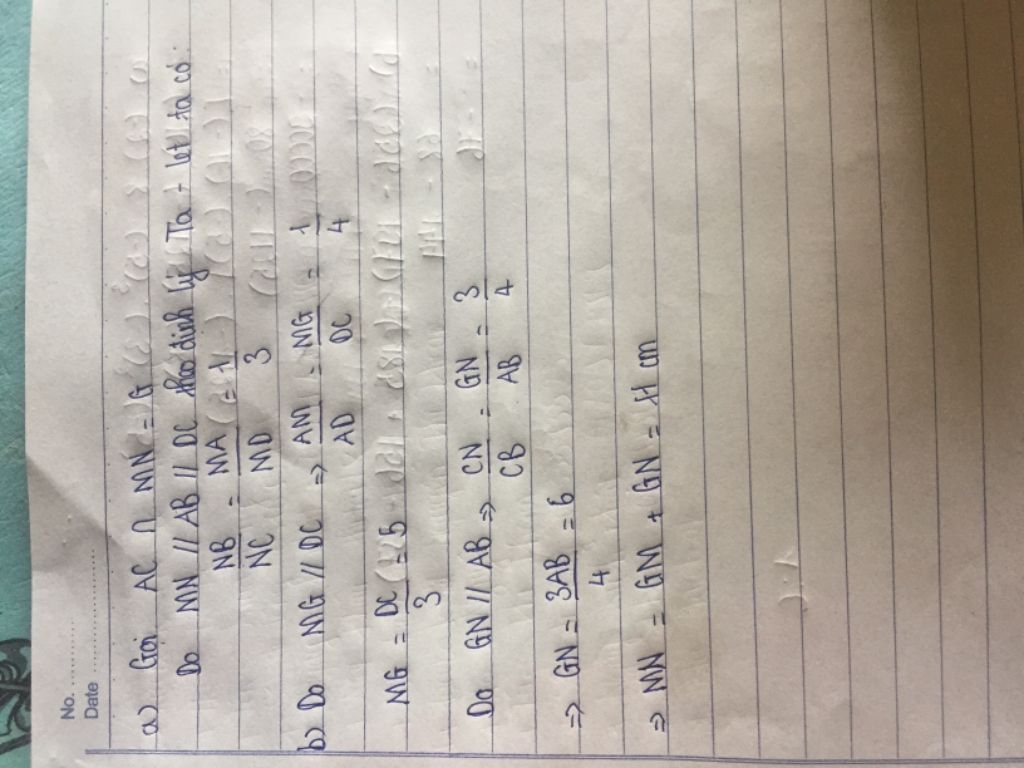 No. ............
Date ............
a) Gọi AC ∩ MN = G
Do MN // AB // DC theo định lý Ta - lét ta có:
NB/NC = MA/MD = 1/3
b) Do MG // DC ⇒ AM/AD = MG/DC = 1/4
MG = DC/3 = 5
Do GN // AB ⇒ CN/CB = GN/AB = 3/4
⇒ GN = 3AB/4 = 6
⇒ MN = GM + GN = 11 cm